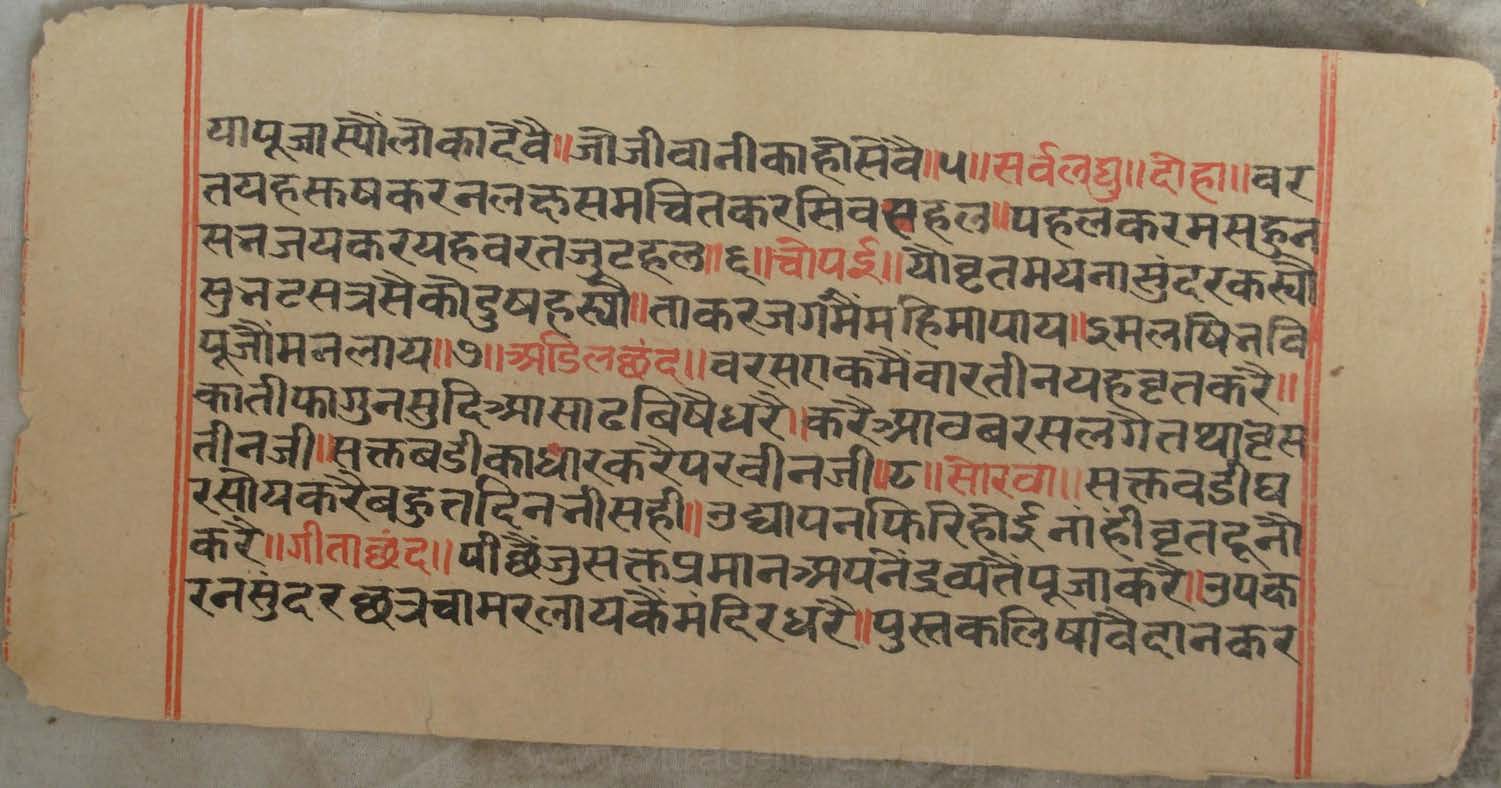 यापूजास्यौंलौकादेवै॥जौजीवानीकाहीसेवै॥५॥सर्वलघु॥दोहा॥वर
तयहरूषकरनलरूसमचितकरसिवसहल॥पहलकरमसहुन
सनजयकरयहवरतजुटहल॥६॥चौपई॥यौवृतमयनासुंदरकस्यौ
सुनटसत्रसैकौदुषहस्यौ॥ताकरजगमैंमहिमापाय॥इमलषिनवि
पूजौंमनलाय॥७॥अडिलछंद॥वरसएकमैंवारतीनयहवृतकरै॥
कातीफागुनसुदिआसाढबिषैधरै॥करैआठबरसलगैतथावृस
तीनजी॥सक्तबडीकाधारकरैपरवीनजी॥८॥सोरठा॥सक्तवडीघ
रसोयकरैबहुतदिननीसही॥उद्यापनफिरिहोईनांहीवृतदूनौ
करै॥गीताछंद॥पीछैंजुसक्तप्रमानअपनेंद्रव्यतैंपूजाकरै॥उपक
रनसुंदरछत्रचामरलायकैंमंदिरधरै॥पुस्तकलिषांवैदानकर